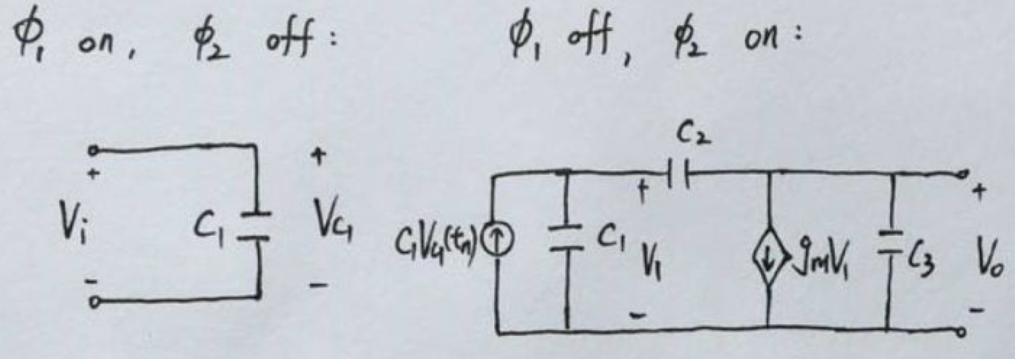 ϕ₁ on, ϕ₂ off: ϕ₁ off, ϕ₂ on:
C₂
+ + + +
Vᵢ C₁ V_C₁ C₁V_C₁(tₙ) C₁ V₁ gₘV₁ C₃ Vₒ
- - - -